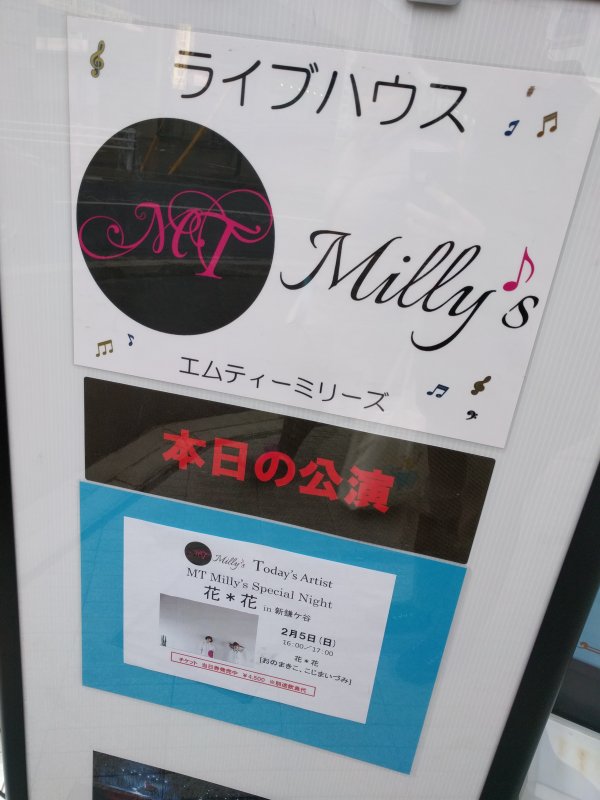 ライブハウス
MT
Milly's
エムティーミリーズ
本日の公演
MT Milly's Today's Artist
MT Milly's Special Night
花*花 in 新鎌ケ谷
2月5日(日)
16:00/17:00
花*花
[おのまきこ、こじまいづみ]
チケット 当日券発売中 ¥4,500 ※別途飲食代